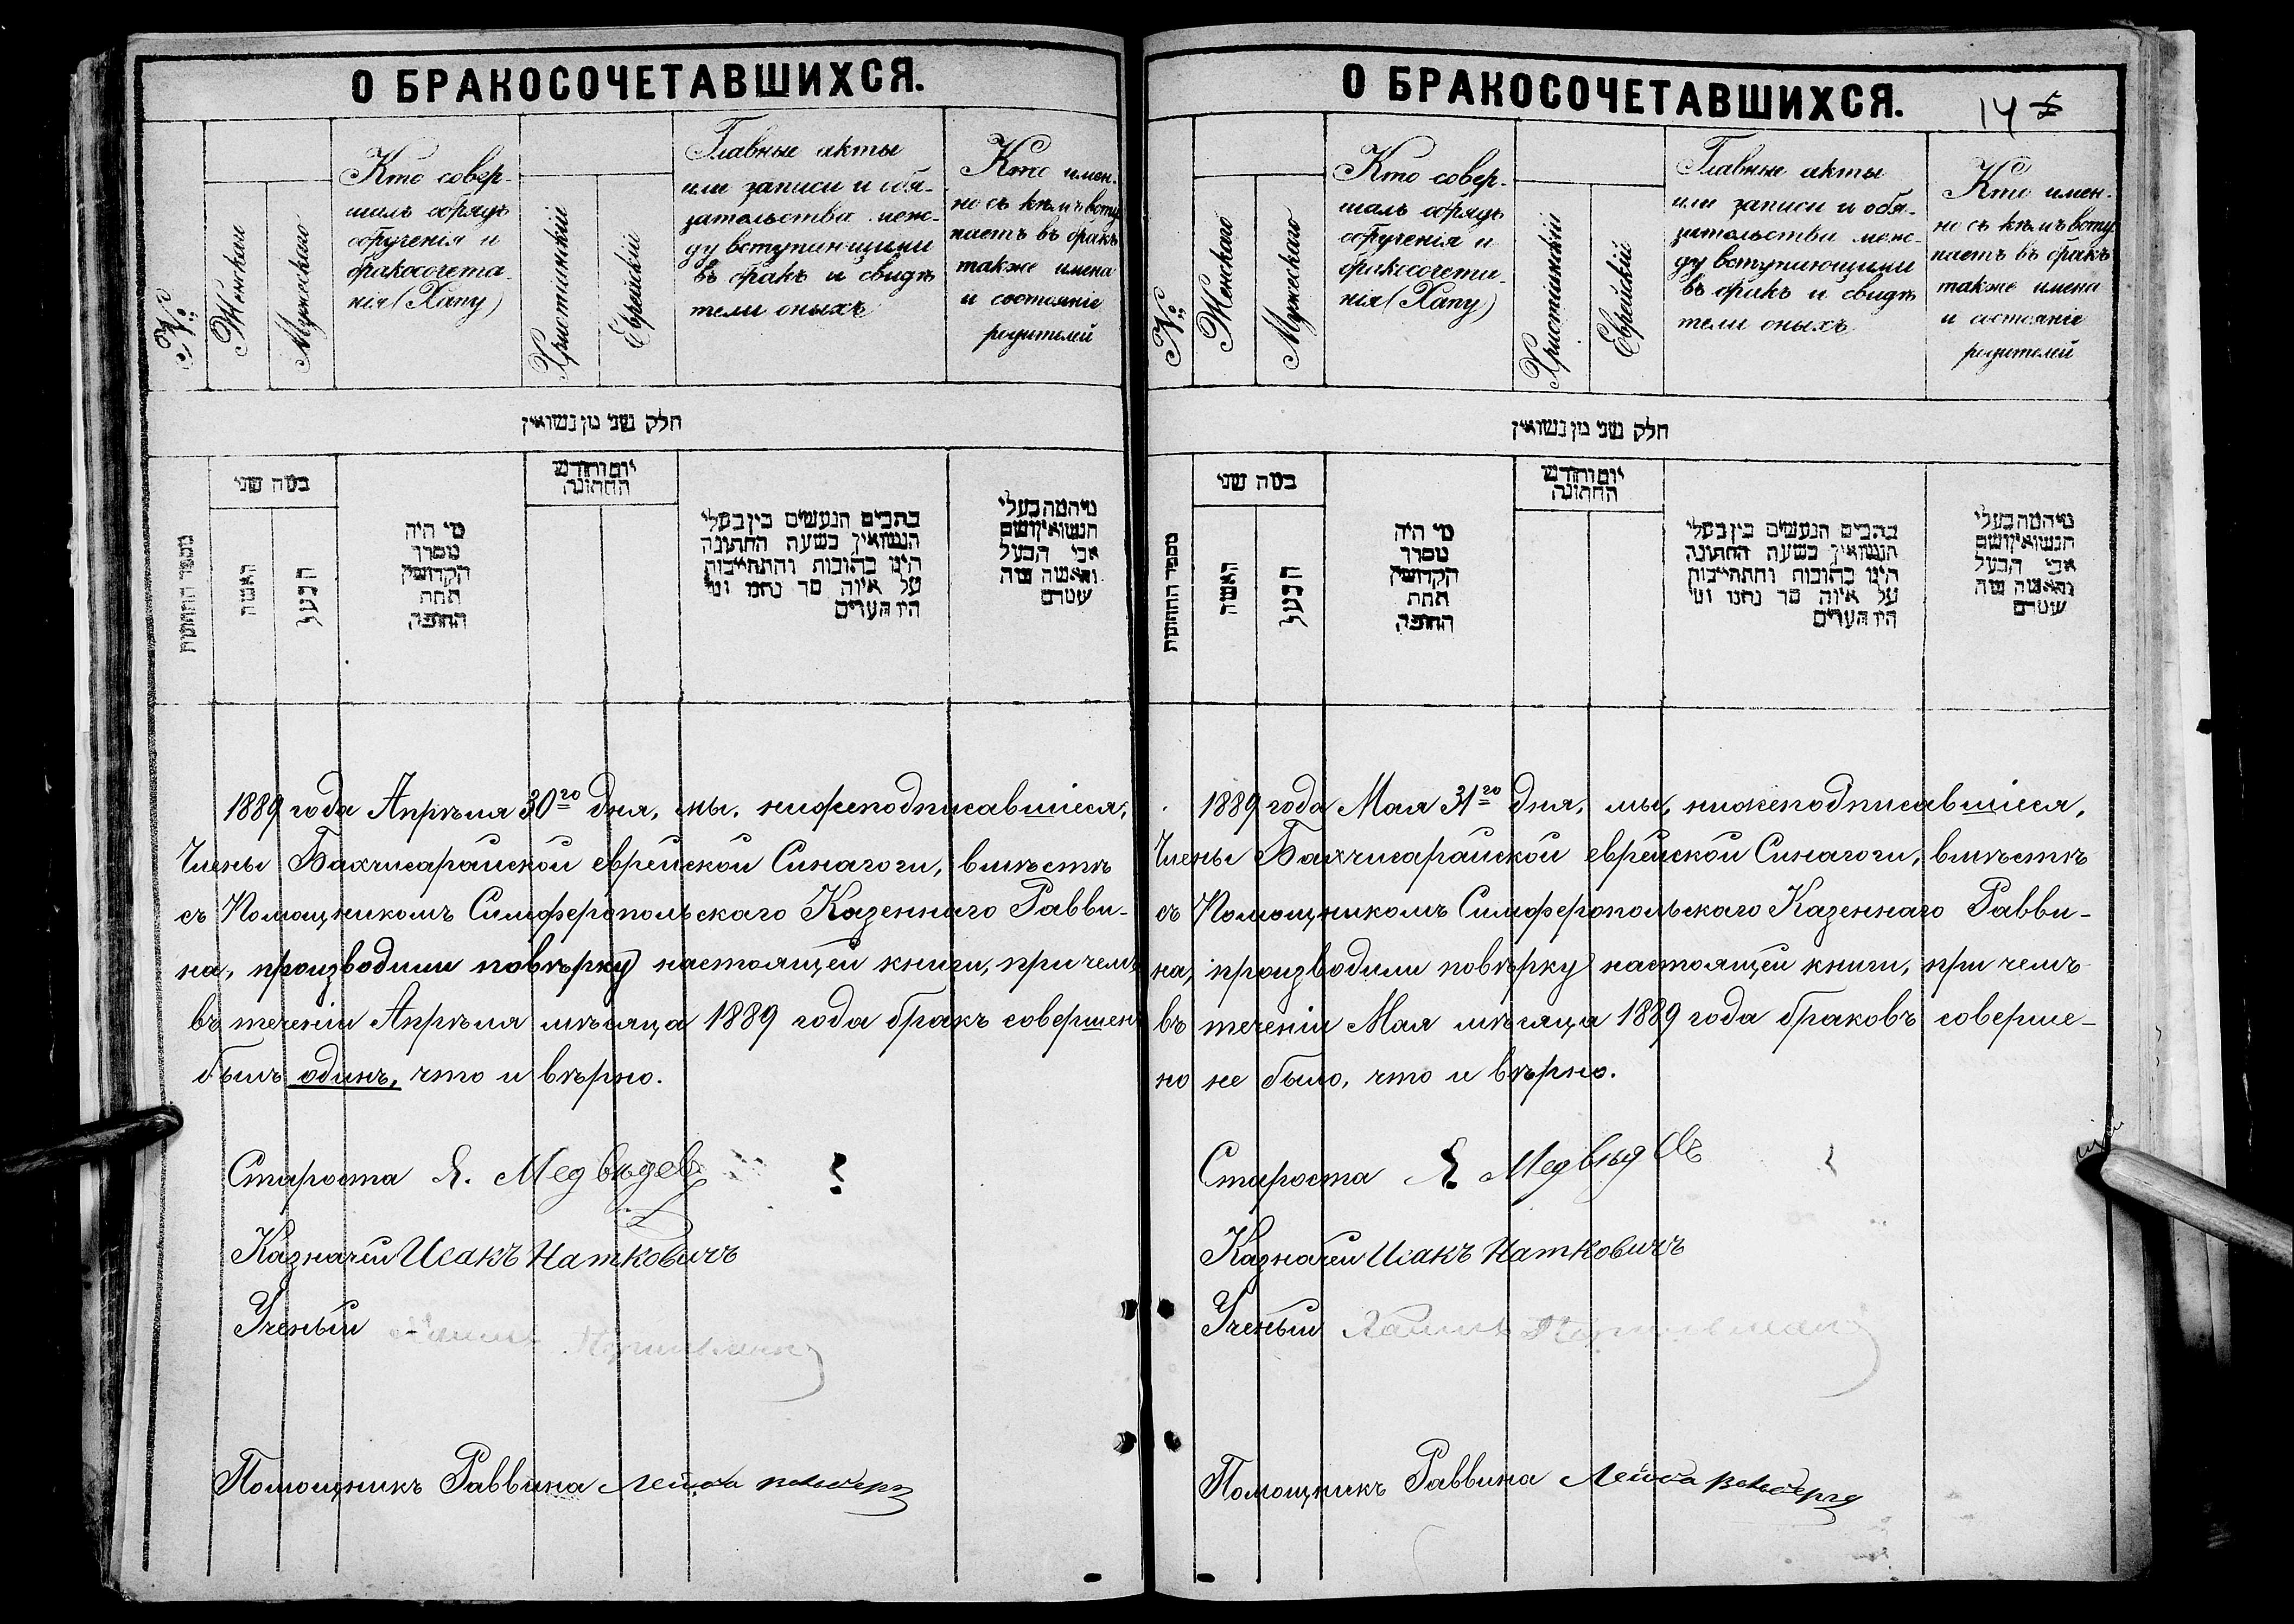 О БРАКОСОЧЕТАВШИХСЯ.
№
Женскаго
Мужескаго
Кто совер-
шалъ обрядъ
обрученія и
бракосочета-
нія (Хапу)
Христіанскій
Еврейскій
Главные акты
или записи и обя-
зательства меж-
ду вступающими
въ бракъ и свидѣ
тели оныхъ
Кто имен-
но съ кѣмъ всту
паетъ въ бракъ
также имена
и состояніе
родителей
חלק שני מן נשואין
מספר החתונות
כמה שני
האשה
הבעל
מי היה
מסדר
הקדושין
תחת
החופה
יום וחודש
החתונה
כתבים הנעשים בין בעלי
הנשואין בשעת החתונה
היינו כתובות והתחייבות
על איזה סך נתנו ומי
היו העדים
מי המה בעלי
הנשואין ושם
אבי הבעל
והאשה ומה
שמרם
1889 года Апрѣля 30го дня, мы, нижеподписавшіеся,
Члены Бахчисарайской еврейской Синагоги, вмѣстѣ
съ Помощникомъ Симферопольскаго Казеннаго Равви-
на, производили повѣрку настоящей книги, при чемъ
въ теченіи Апрѣля мѣсяца 1889 года бракъ совершенъ
былъ одинъ, что и вѣрно.
Староста Я. Медвѣдевъ
Казначей Исакъ Натковичъ
Ученый
Помощникъ Раввина Лейба Вольберг
О БРАКОСОЧЕТАВШИХСЯ.
14
№
Женскаго
Мужескаго
Кто совер-
шалъ обрядъ
обрученія и
бракосочета-
нія (Хапу)
Христіанскій
Еврейскій
Главные акты
или записи и обя-
зательства меж-
ду вступающими
въ бракъ и свидѣ
тели оныхъ
Кто имен-
но съ кѣмъ всту
паетъ въ бракъ
также имена
и состояніе
родителей
חלק שני מן נשואין
מספר החתונות
כמה שני
האשה
הבעל
מי היה
מסדר
הקדושין
תחת
החופה
יום וחודש
החתונה
כתבים הנעשים בין בעלי
הנשואין בשעת החתונה
היינו כתובות והתחייבות
על איזה סך נתנו ומי
היו העדים
מי המה בעלי
הנשואין ושם
אבי הבעל
והאשה ומה
שמרם
1889 года Мая 31го дня, мы, нижеподписавшіеся,
Члены Бахчисарайской еврейской Синагоги, вмѣстѣ
съ Помощникомъ Симферопольскаго Казеннаго Равви-
на, производили повѣрку настоящей книги, при чемъ
въ теченіи Мая мѣсяца 1889 года браковъ соверше-
но не было, что и вѣрно.
Староста Я Медвѣдевъ
Казначей Исакъ Натковичъ
Ученый Хаимъ
Помощникъ Раввина Лейба Вольбергъ